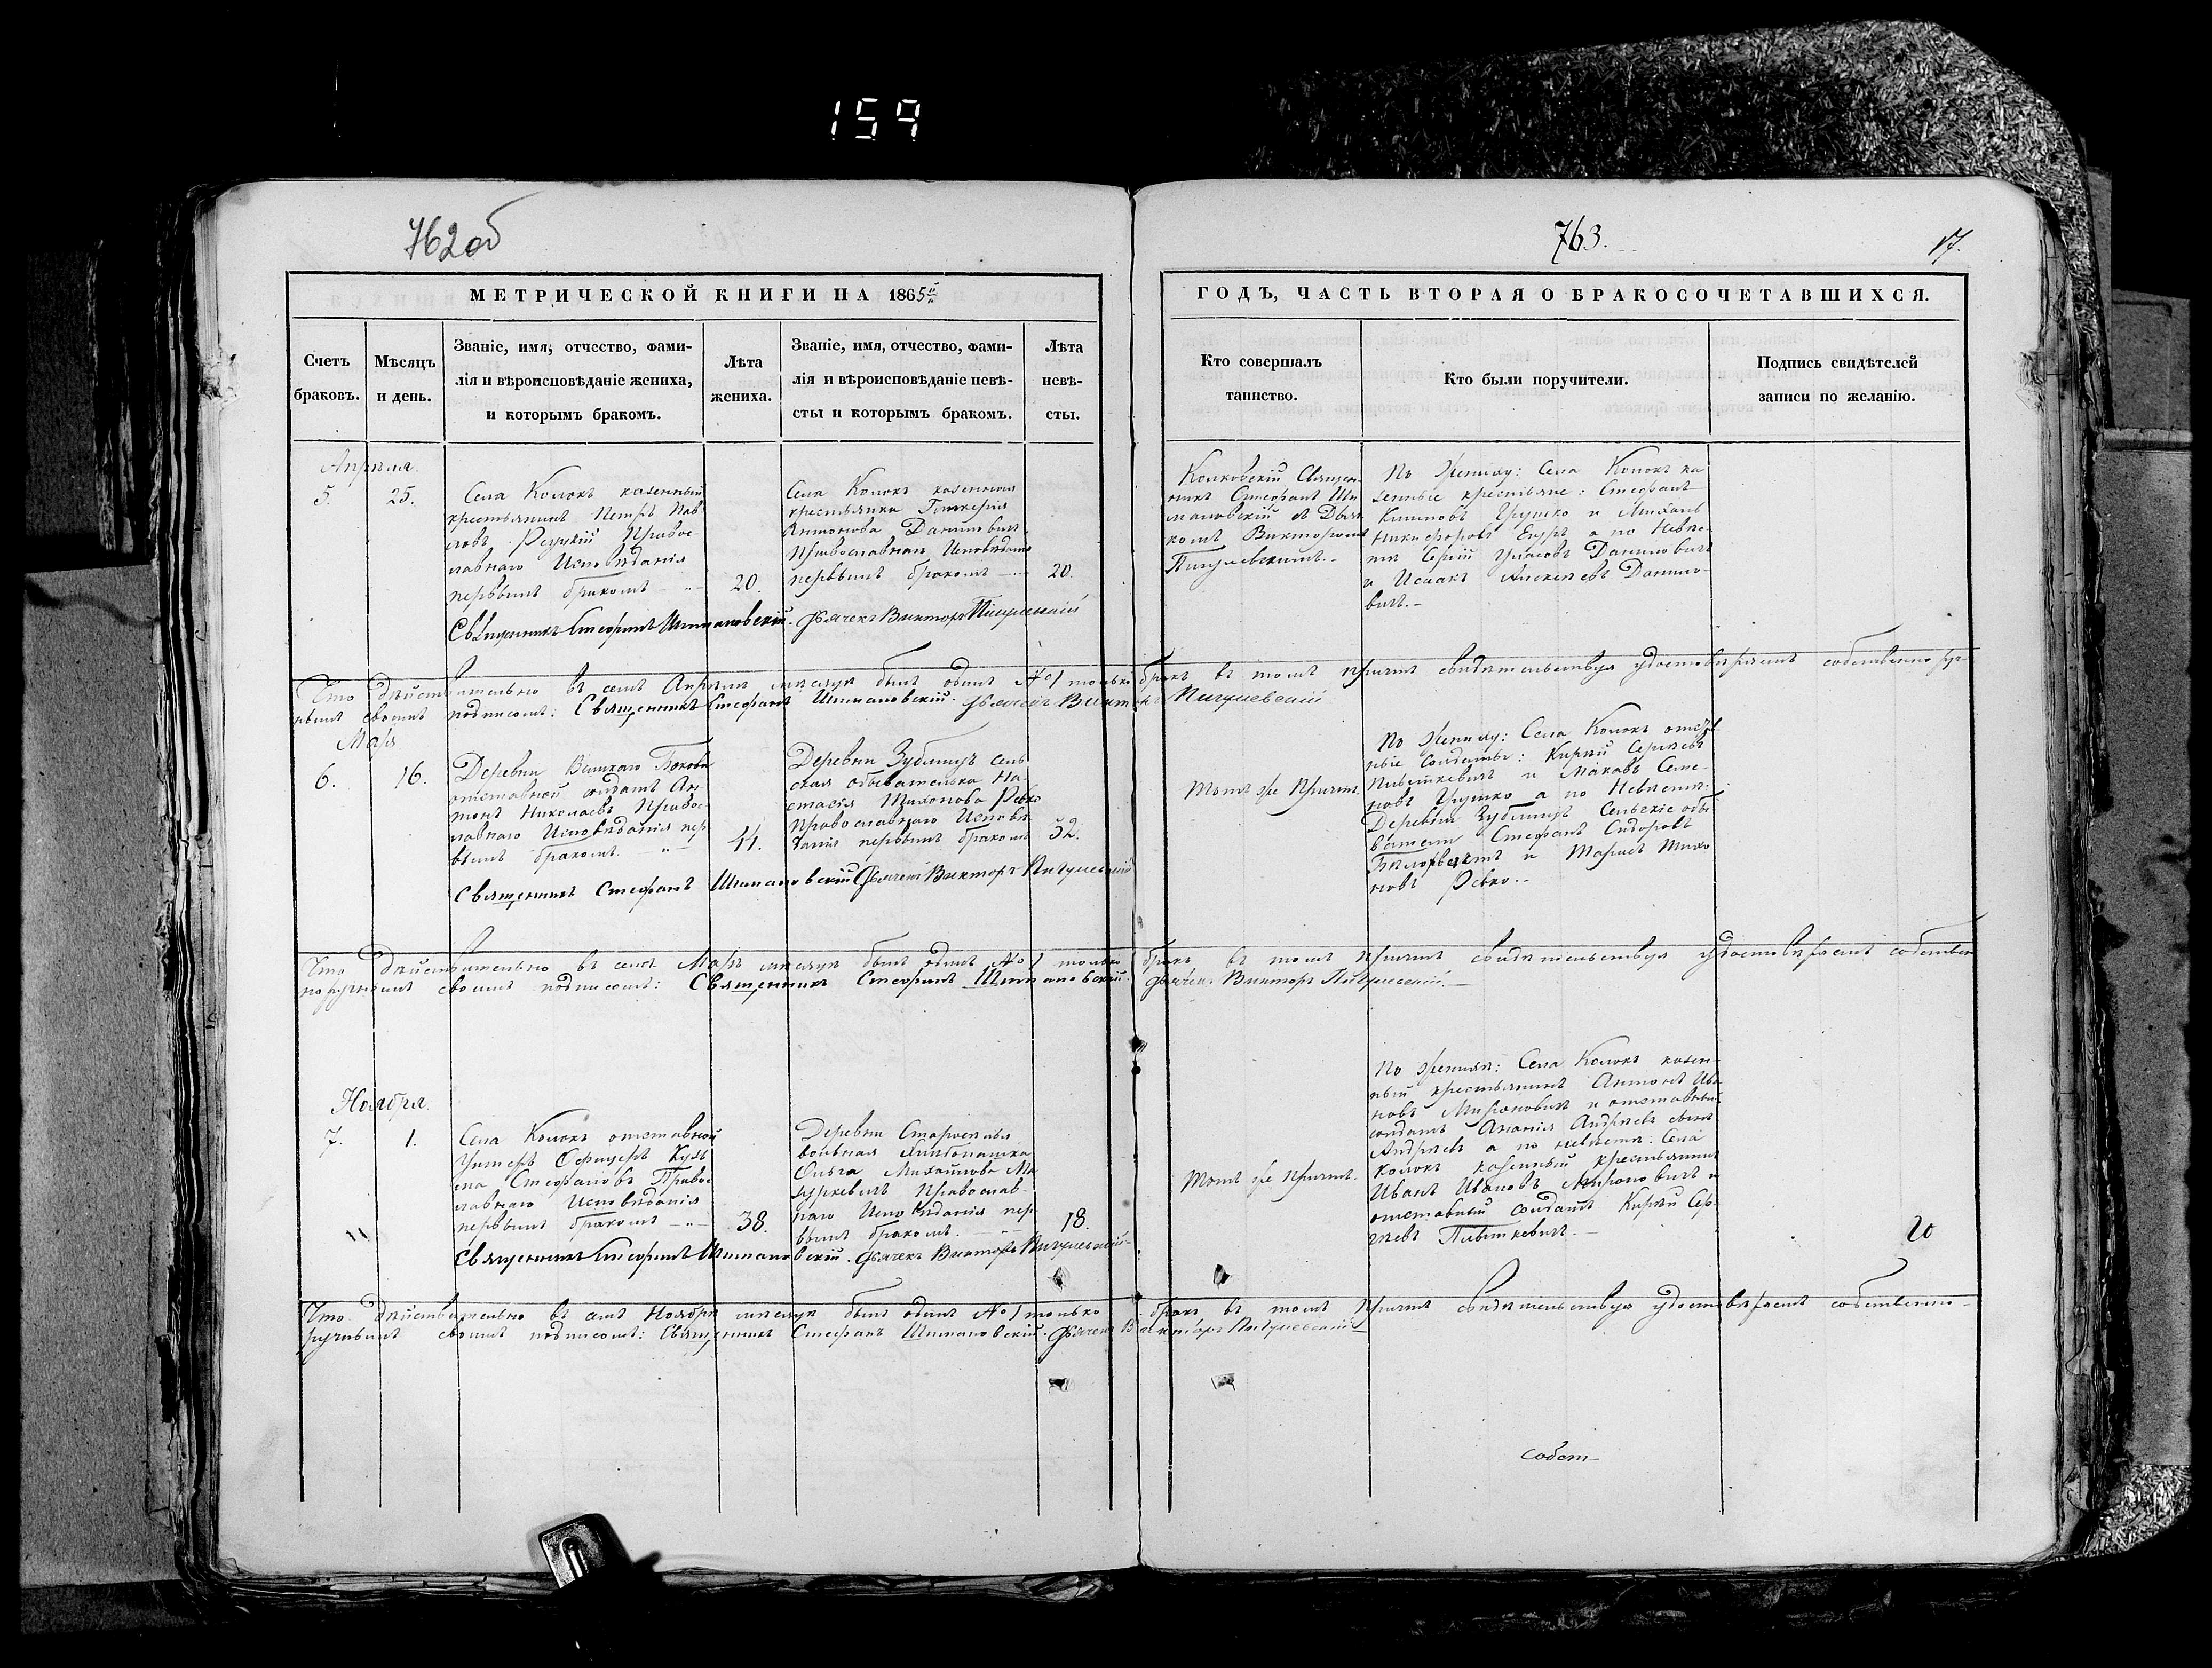 159
762об
763.
17.
МЕТРИЧЕСКОЙ КНИГИ НА 1865й
ГОДЪ, ЧАСТЬ ВТОРАЯ О БРАКОСОЧЕТАВШИХСЯ.
Счетъ
браковъ.
Мѣсяцъ
и день.
Званіе, имя, отчество, фами-
лія и вѣроисповѣданіе жениха,
и которымъ бракомъ.
Лѣта
жениха.
Званіе, имя, отчество, фами-
лія и вѣроисповѣданіе невѣ-
сты и которымъ бракомъ.
Лѣта
невѣ-
сты.
Кто совершалъ
таинство.
Кто были поручители.
Подпись свидѣтелей
записи по желанію.
Апрѣля.
5.
25.
Села Колокъ казенный
крестьянинъ Петръ Пав-
ловъ Православ-
лавнаго Исповѣданія
первымъ бракомъ
20.
Села Колокъ казенная
крестьянка Гликерія
Антонова Данилович
Православнаго Исповѣдані
первымъ бракомъ
20.
Колковскій Священ-
никъ Стефанъ Ши
мановскій съ Дьяч
комъ Викторомъ
Пигулевскимъ.
По Жениху: Села Колокъ ка
зенные крестьяне: Стефанъ
Климовъ Грушко и Михаилъ
Никифоровъ а по Невѣс-
тѣ Данилович
и Исаакъ Алексѣевъ Данило-
вичъ.-
Священникъ Стефанъ Шимановскій. Дьячекъ Викторъ Пигулевскій
Что дѣйствительно въ семъ Апрѣлѣ мѣсяцѣ былъ одинъ №1 только бракъ въ томъ причтъ свидѣтельствуя удостовѣряетъ собственнору-
чнымъ своимъ подписомъ: Священникъ Стефанъ Шимановскій. Дьячекъ Викторъ Пигулевскій
Мая
6.
16.
Деревни Великаго
отставной солдатъ Ан
тонъ Николаевъ Правос
лавнаго Исповѣданія пер
вымъ бракомъ.
44.
Деревни Зублищъ сель
ская обывателька На-
стасія Тихонова Ревко
Православнаго Исповѣ
данія первымъ бракомъ
32.
Тотъ же Причтъ.
По Жениху: Села Колокъ отстав
ные солдаты: Кирilъ Сергѣевъ
и Маковъ Семе-
новъ Грушко а по Невѣстѣ:
Деревни Зублищъ Сельскіе обы
ватели Стефанъ Сидоровъ
и Тарасъ Тихо
новъ Ревко.-
Священникъ Стефанъ Шимановскій Дьячекъ Викторъ Пигулевскій
Что дѣйствительно въ семъ Маѣ мѣсяцѣ былъ одинъ №1 только бракъ въ томъ причтъ свидѣтельствуя удостовѣряетъ собствен
норучнымъ своимъ подписомъ: Священникъ Стефанъ Шимановскій. Дьячекъ Викторъ Пигулевскій.
Ноября.
7.
1.
Села Колокъ отставной
Унтеръ Офицеръ Кузь
ма Стефановъ Правос
лавнаго Исповѣданія
первымъ бракомъ
38.
Деревни
вольная
Ольга Михайлова Ма
зуркевичъ Православ-
наго Исповѣданія пер
вымъ бракомъ.
18.
Тотъ же Причтъ.
По Женихѣ: Села Колокъ казен-
ный крестьянинъ Антонъ Ива
новъ Мироновичъ и отставный
солдатъ Ананія Андреевъ сынъ
Андреевъ а по невѣстѣ: Села
Колокъ казенный крестьянинъ
Иванъ Ивановъ Мироновичъ и
отставный солдатъ Кирilъ Сер-
гѣевъ
Священникъ Стефанъ Шимановскій. Дьячекъ Викторъ Пигулевскій
20
Что дѣйствительно въ семъ Ноябрѣ мѣсяцѣ былъ одинъ №1 только бракъ въ томъ причтъ свидѣтельствуя удостовѣряетъ собственно-
ручнымъ своимъ подписомъ: Священникъ Стефанъ Шимановскій. Дьячекъ Викторъ Пигулевскій
собст-